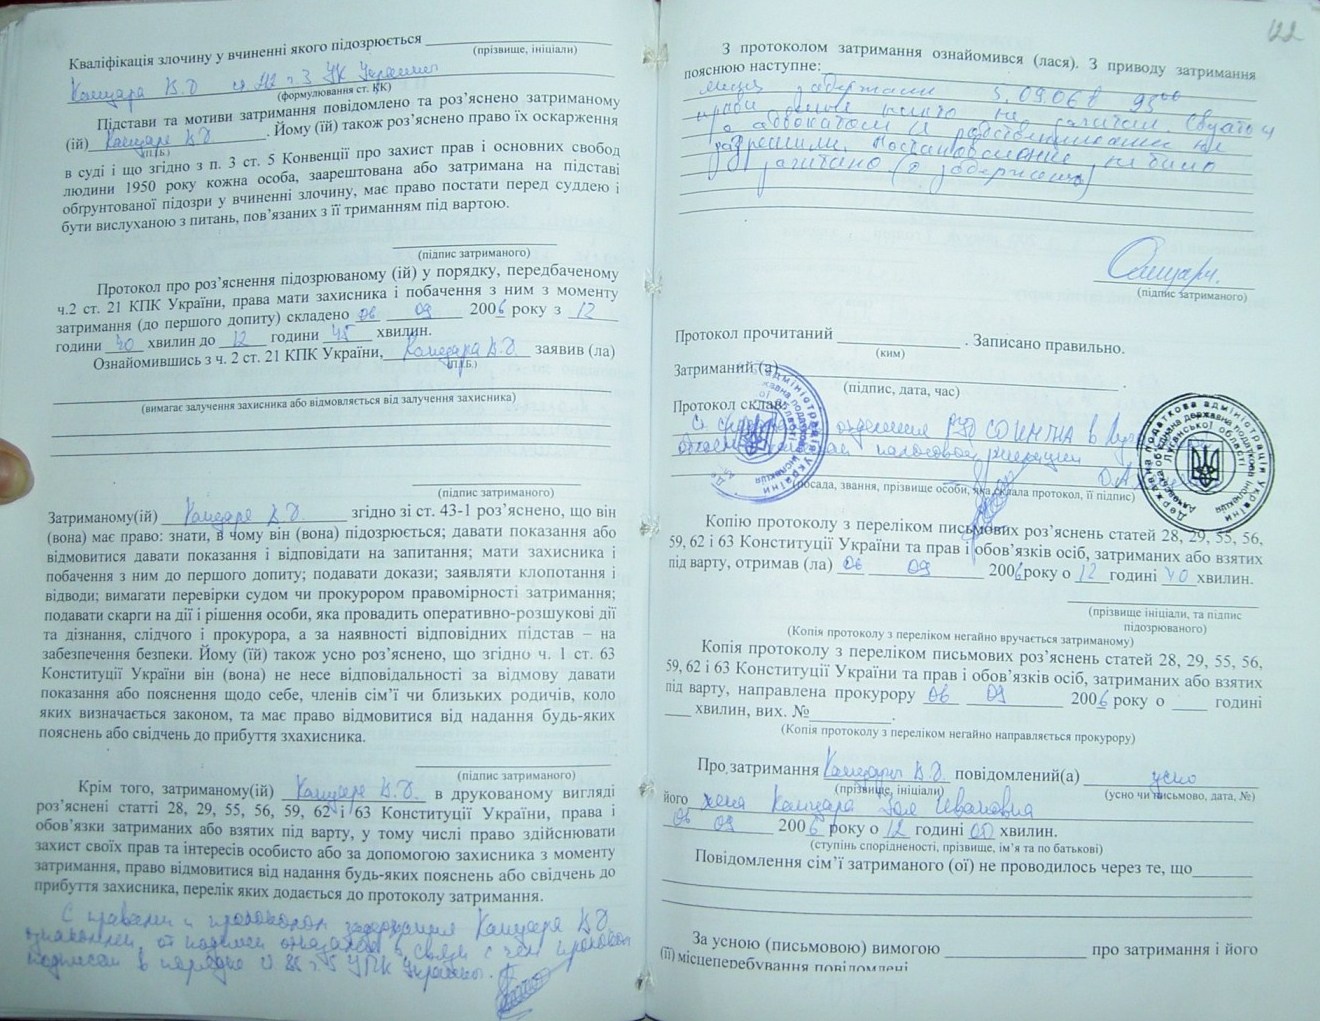 Кваліфікація злочину у вчиненні якого підозрюється
(прізвище, ініціали)
Камцара В.Д ст. 212 ч 3 УК Украины
(формулювання ст. КК)
Підстави та мотиви затримання повідомлено та роз’яснено затриманому
(ій) Камцара В.Д. . Йому (їй) також роз’яснено право їх оскарження
(П.І.Б.)
в суді і що згідно з п. 3 ст. 5 Конвенції про захист прав і основних свобод
людини 1950 року кожна особа, заарештована або затримана на підставі
обґрунтованої підозри у вчиненні злочину, має право постати перед суддею і
бути вислуханою з питань, пов’язаних з її триманням під вартою.
(підпис затриманого)
Протокол про роз’яснення підозрюваному (ій) у порядку, передбаченому
ч.2 ст. 21 КПК України, права мати захисника і побачення з ним з моменту
затримання (до першого допиту) складено 06 09 2006 року з 12
години 40 хвилин до 12 години 45 хвилин.
Ознайомившись з ч. 2 ст. 21 КПК України, Камцара В.Д. заявив (ла)
(П.І.Б.)
(вимагає залучення захисника або відмовляється від залучення захисника)
(підпис затриманого)
Затриманому(ій) Камцаре В.Д. згідно зі ст. 43-1 роз’яснено, що він
(вона) має право: знати, в чому він (вона) підозрюється; давати показання або
відмовитися давати показання і відповідати на запитання; мати захисника і
побачення з ним до першого допиту; подавати докази; заявляти клопотання і
відводи; вимагати перевірки судом чи прокурором правомірності затримання;
подавати скарги на дії і рішення особи, яка провадить оперативно-розшукові дії
та дізнання, слідчого і прокурора, а за наявності відповідних підстав – на
забезпечення безпеки. Йому (їй) також усно роз’яснено, що згідно ч. 1 ст. 63
Конституції України він (вона) не несе відповідальності за відмову давати
показання або пояснення щодо себе, членів сім’ї чи близьких родичів, коло
яких визначається законом, та має право відмовитися від надання будь-яких
пояснень або свідчень до прибуття зхахисника.
(підпис затриманого)
Крім того, затриманому(ій) Камцаре В.Д. в друкованому вигляді
роз’яснені статті 28, 29, 55, 56, 59, 62 і 63 Конституції України, права і
обов’язки затриманих або взятих під варту, у тому числі право здійснювати
захист своїх прав та інтересів особисто або за допомогою захисника з моменту
затримання, право відмовитися від надання будь-яких пояснень або свідчень до
прибуття захисника, перелік яких додається до протоколу затримання.
С правами и протоколом задержания Камцара В.Д
ознакомлен, от подписи отказался в связи с чем протокол
подписан в порядке ст 85 УПК Украины.
122
З протоколом затримання ознайомився (лася). З приводу затримання
пояснюю наступне:
задержали 5.09.06 в
права мне никто не зачитал.
с адвокатом и родственниками не
разрешили. Постановление не было
зачитано (о задержании)
(підпис затриманого)
Протокол прочитаний . Записано правильно.
(ким)
Затриманий (а) .
(підпис, дата, час)
Протокол склав:
отделения налоговой милиции
(посада, звання, прізвище особи, яка склала протокол, її підпис)
Державна податкова адміністрація України
державна податкова інспекція Луганської області
Копію протоколу з переліком письмових роз’яснень статей 28, 29, 55, 56,
59, 62 і 63 Конституції України та прав і обов’язків осіб, затриманих або взятих
під варту, отримав (ла) 06 09 2006 року о 12 годині 40 хвилин.
(прізвище ініціали, та підпис
підозрюваного)
(Копія протоколу з переліком негайно вручається затриманому)
Копія протоколу з переліком письмових роз’яснень статей 28, 29, 55, 56,
59, 62 і 63 Конституції України та прав і обов’язків осіб, затриманих або взятих
під варту, направлена прокурору 06 09 2006 року о годині
хвилин, вих. № .
(Копія протоколу з переліком негайно направляється прокурору)
Про затримання Камцары В.Д. повідомлений(а) усно
(прізвище, ініціали) (усно чи письмово, дата, №)
його жена Камцара Ивановна
06 09 2006 року о 12 годині 00 хвилин.
(ступінь спорідненості, прізвище, ім’я та по батькові)
Повідомлення сім’ї затриманого (ої) не проводилось через те, що
За усною (письмовою) вимогою про затримання і його
(її) місцеперебування повідомлені